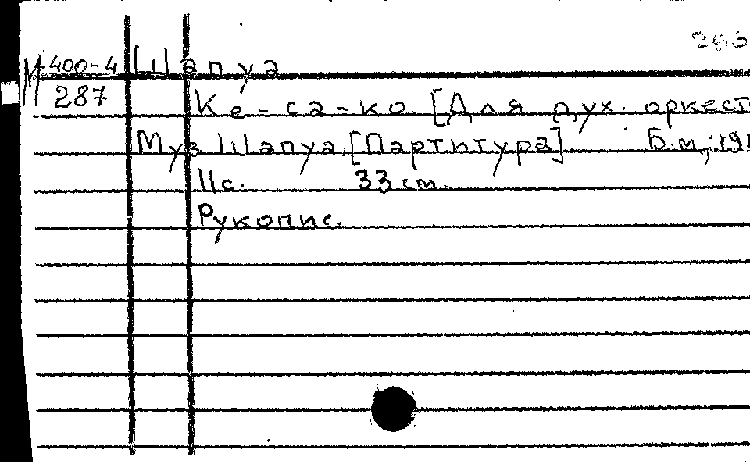 М 400-4 Шапуа
287 Ке-са-ко. [Для дух. оркест
Муз. Шапуа. [Партитура]. Б.м.,
11с. 33 см.
Рукопис.